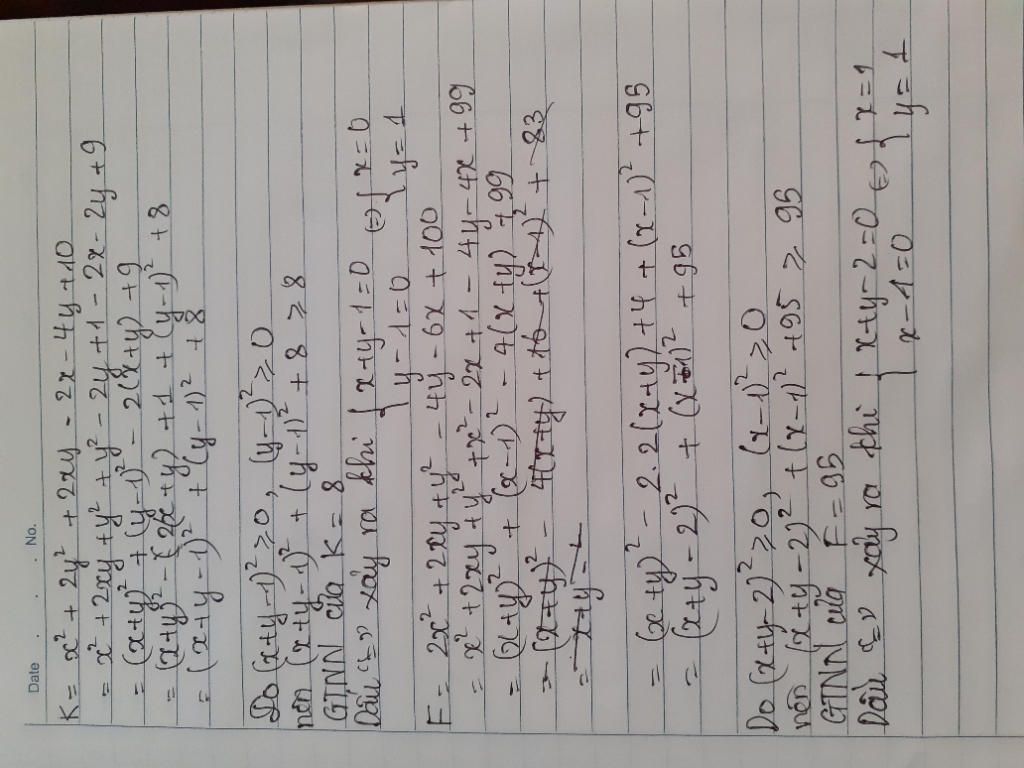 Date . . . No.
K = x² + 2y² + 2xy - 2x - 4y + 10
= x² + 2xy + y² + y² - 2y + 1 - 2x - 2y + 9
= (x+y)² + (y-1)² - 2(x+y) + 9
= (x+y)² - 2(x+y) + 1 + (y-1)² + 8
= (x+y-1)² + (y-1)² + 8
Do (x+y-1)² ≥ 0, (y-1)² ≥ 0
nên (x+y-1)² + (y-1)² + 8 ≥ 8
GTNN của K = 8
Dấu "=" xảy ra khi { x+y-1=0 ⇔ { x=0
y-1=0 y=1
F = 2x² + 2xy + y² - 4y - 6x + 100
= x² + 2xy + y² + x² - 2x + 1 - 4y - 4x + 99
= (x+y)² + (x-1)² - 4(x+y) + 99
= (x+y)² - 4(x+y) + 16 + (x-1)² + 83
= x+y-
= (x+y)² - 2.2(x+y) + 4 + (x-1)² + 95
= (x+y-2)² + (x-1)² + 95
Do (x+y-2)² ≥ 0, (x-1)² ≥ 0
nên (x+y-2)² + (x-1)² + 95 ≥ 95
GTNN của F = 95
Dấu "=" xảy ra khi { x+y-2=0 ⇔ { x=1
x-1=0 y=1